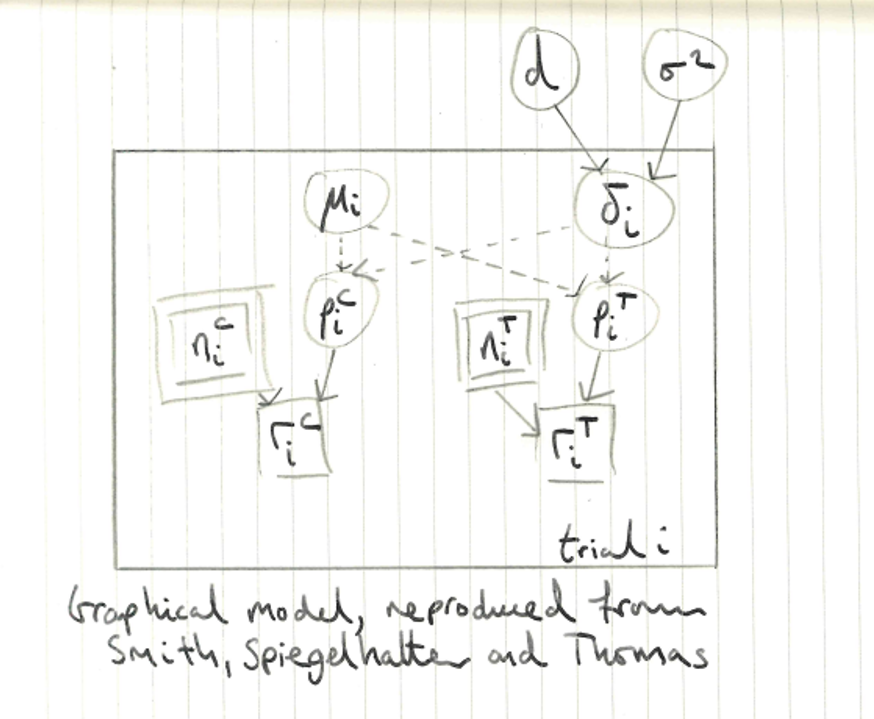 d σ²
μᵢ δᵢ
nᵢᶜ pᵢᶜ nᵢᵀ pᵢᵀ
rᵢᶜ rᵢᵀ
trial i
Graphical model, reproduced from
Smith, Spiegelhalter and Thomas